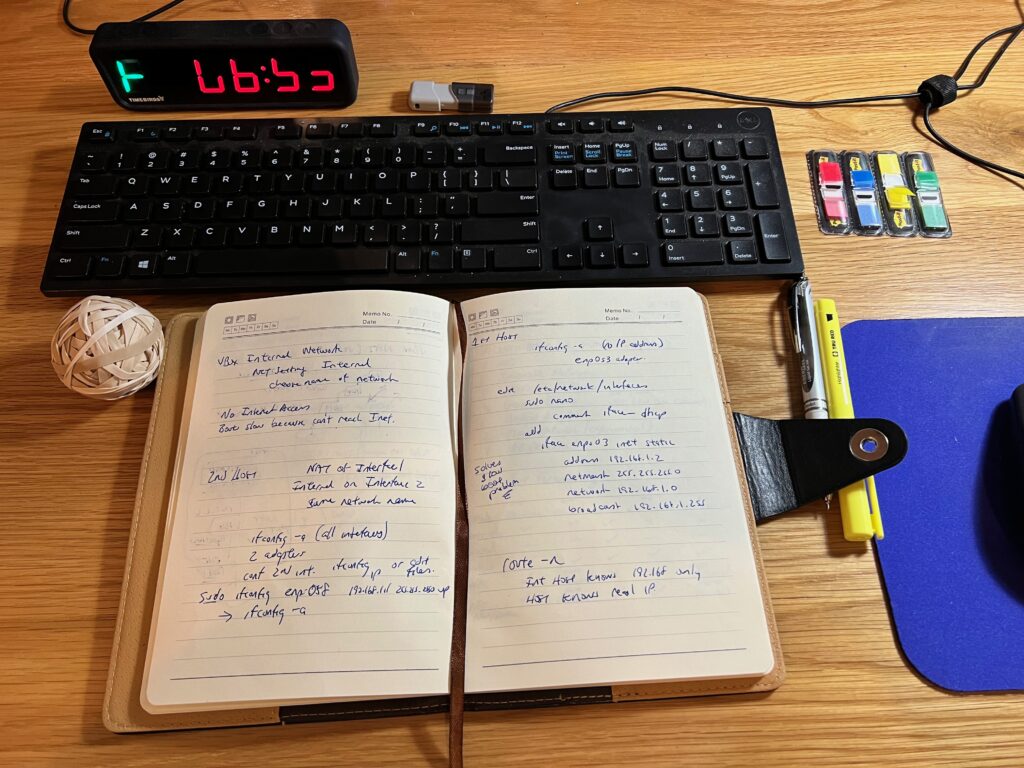 TIMEBIRDS
Esc F1 F2 F3 F4 F5 F6 F7 F8 F9 F10 F11 F12
~ ! @ # $ % ^ & * ( ) _ + Backspace
` 1 2 3 4 5 6 7 8 9 0 - =
Tab Q W E R T Y U I O P { } |
[ ] \
Caps Lock A S D F G H J K L : " Enter
; '
Shift Z X C V B N M < > ? Shift
, . /
Ctrl Fn Alt Alt Fn Ctrl
Insert Home PgUp
Print Screen Scroll Lock Pause Break
Delete End PgDn
Num Lock / * -
7 8 9 +
Home PgUp
4 5 6
1 2 3 Enter
End PgDn
0 .
Insert Delete
Memo No.
Date / /
VBox Internal Network
Net Setting Internal
choose name of network
No Internet Access
Boot slow because can't reach Inet.
2nd Host NAT of Interface 1
Internal on Interface 2
same network name
ifconfig -a (all interfaces)
2 adapters
conf 2nd int. ifconfig or edit
ip files.
sudo ifconfig enp0s8 192.168.1.1 up
→ ifconfig -a
Memo No.
Date / /
1st Host
ifconfig -a (no IP address)
enp0s3 adapter.
edit /etc/network/interfaces
sudo nano
comment iface - dhcp
add
iface enp0s3 inet static
address 192.168.1.2
netmask 255.255.255.0
network 192.168.1.0
broadcast 192.168.1.255
solves
slow
boot
problem
route -n
Int Host knows 192.168 only
Host knows real IP.